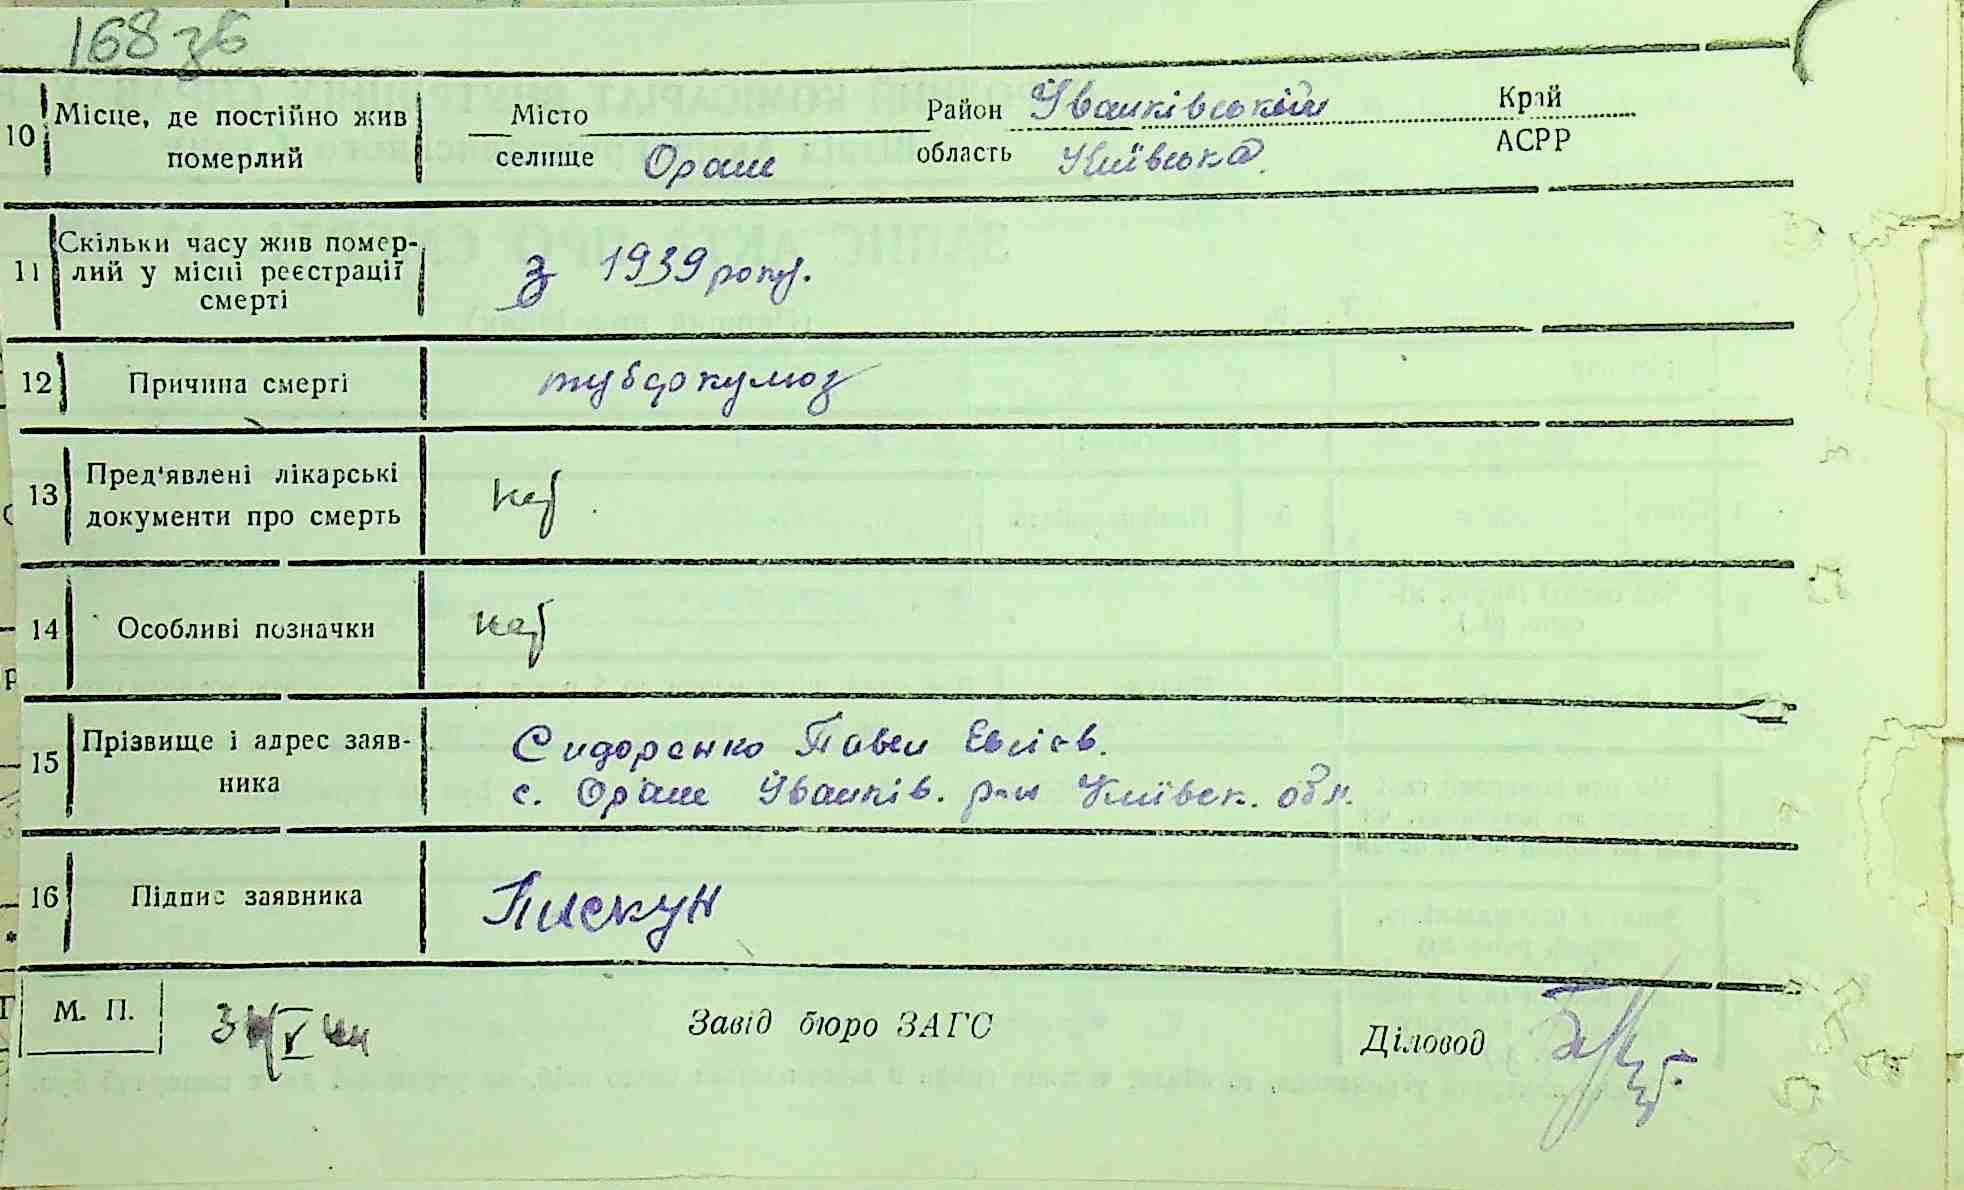 168 зб
10 Місце, де постійно жив померлий Місто Район Іванківський Край
селище Оране область Київська АСРР
11 Скільки часу жив помер-
лий у місці реєстрації
смерті з 1939 року.
12 Причина смерті туберкульоз
13 Пред'явлені лікарські
документи про смерть неб.
14 Особливі позначки неб
15 Прізвище і адрес заяв-
ника Сидоренко Павел
с. Оране Іванків. р-н Київск. обл.
16 Підпис заявника Пискун
М. П. Завід бюро ЗАГС Діловод